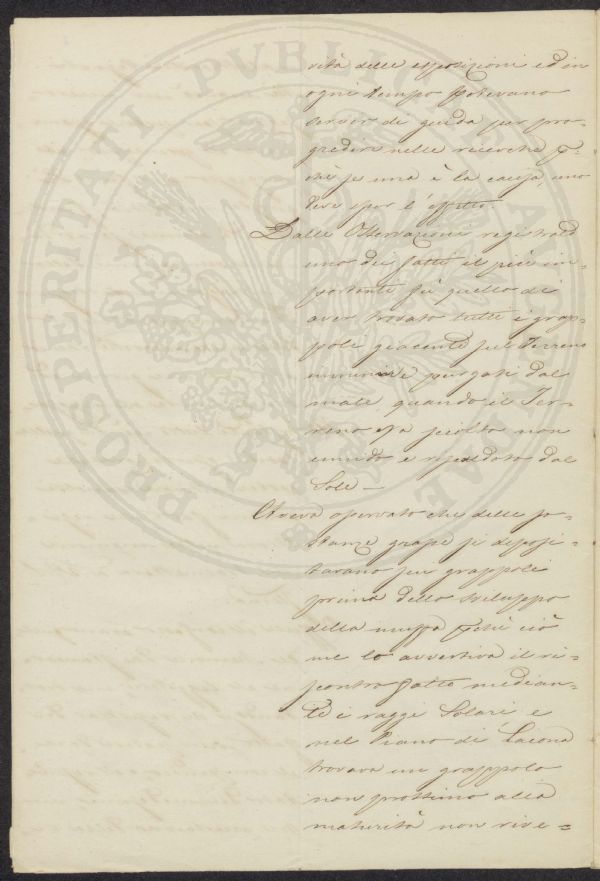 PROSPERITATI PVBLICAE AVGENDAE
rità delle esposizioni ed in
ogni tempo potevano
server di guida per pro-
gredire nelle ricerche
chè se una è la causa, uno
deve esser l'effetto
Dalle Osservazioni
uno dei fatti il più im-
portante fù quello di
aver trovato tutti i grap-
poli giacenti sul Terreno
immuni e purgati dal
male quando il Ter-
reno era sciolto non
umido e dal
Sole —
Aveva osservato che delle so-
stanze grasse si deposi-
tavano sui grappoli
prima dello sviluppo
della muffa ciò
me lo avvertiva il ri-
scontro fatto median-
te i raggi Solari e
nel Piano di Lacona
trovava un grappolo
non prossimo alla
maturità non rive=